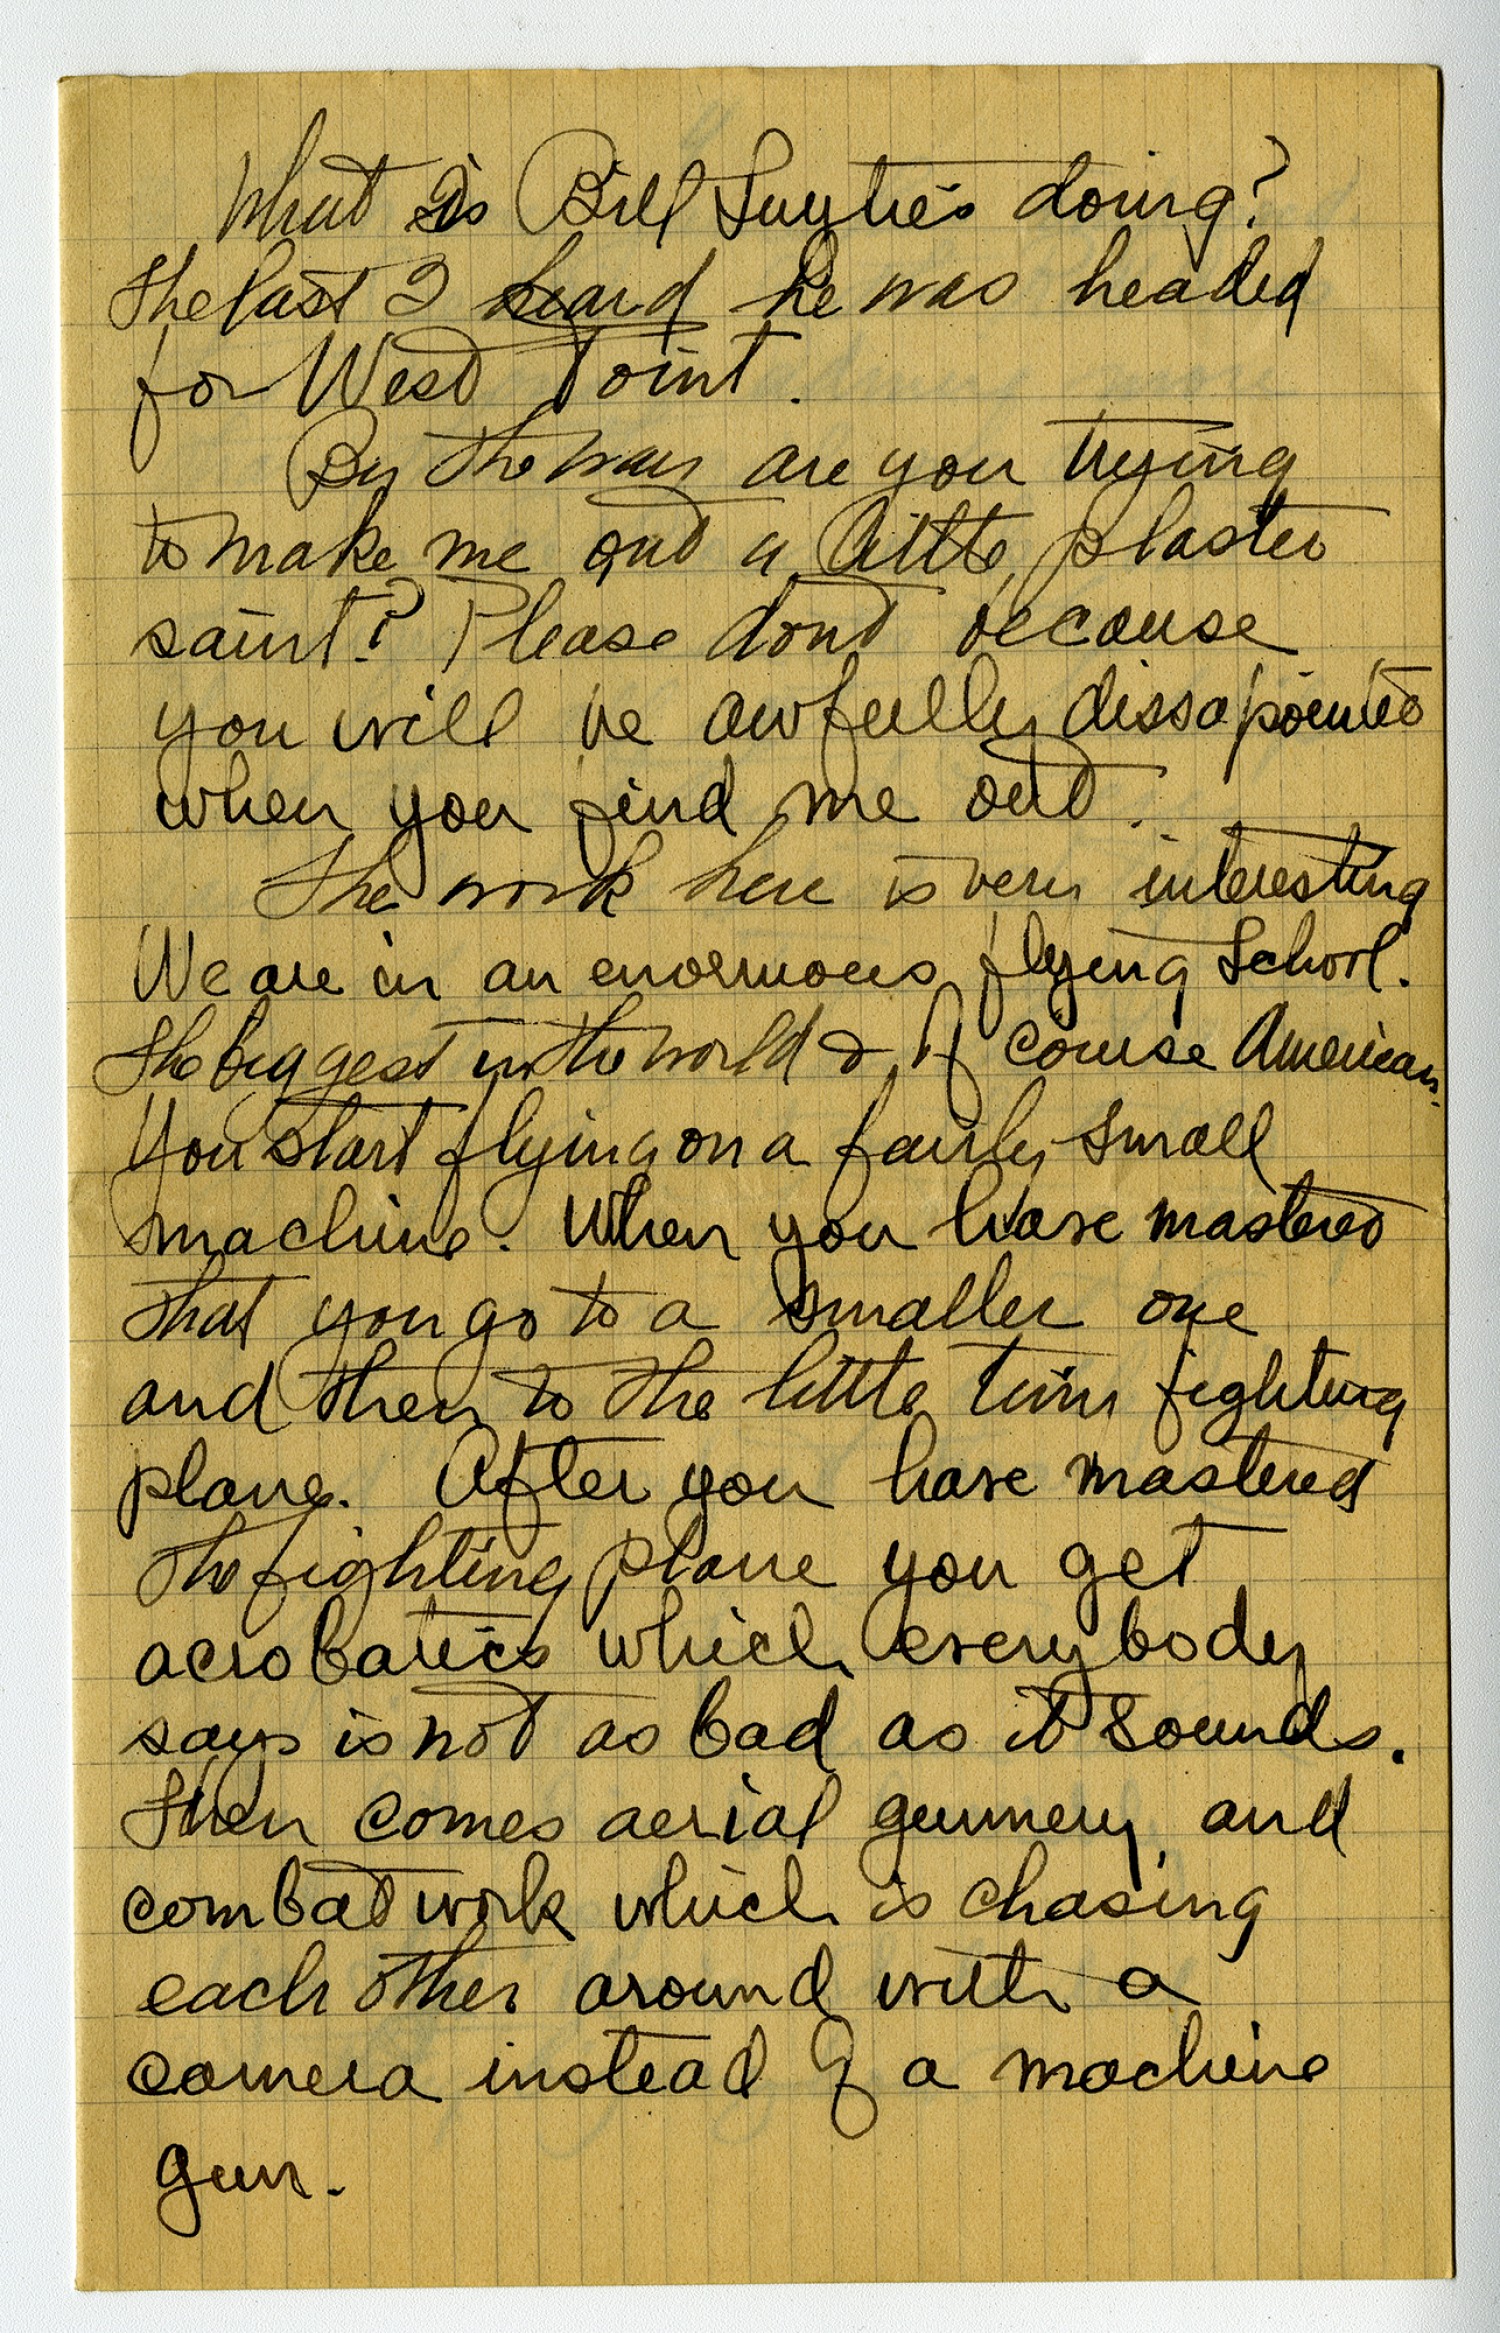 What is Bill Luyties doing?
The last I heard he was headed
for West Point.
By the way are you trying
to make me out a little plaster
saint? Please dont because
you will be awfully dissapointed
when you find me out.
The work here is very interesting
We are in an enormous flying School.
The biggest in the world & of course American.
You start flying on a fairly small
machine. When you have mastered
that you go to a smaller one
and then to the little tiny fighting
plane. After you have mastered
the fighting plane you get
acrobatics which everybody
says is not as bad as it sounds.
Then comes aerial gunnery and
combat work which is chasing
each other around with a
camera instead of a machine
gun.